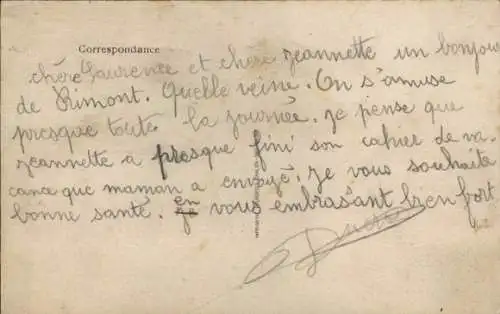 Correspondance
chère Laurence et chère jeannette un bonjour
de Rimont. Quelle veine. On s'amuse
presque toute la journée. je pense que
jeannette a presque fini son cahier de va
cans que maman a envoyé. je vous souhaite
bonne santé. en vous embrasant bien fort